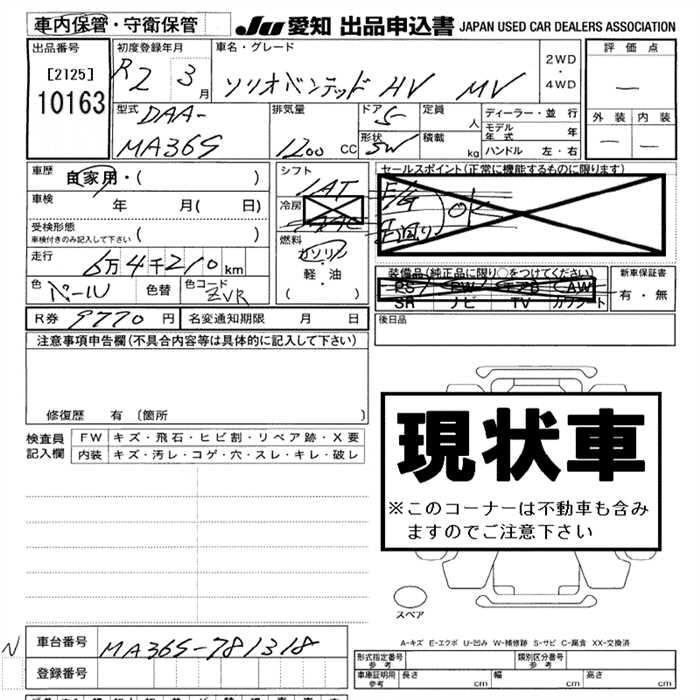 車内保管・守衛保管
JU 愛知 出品申込書 JAPAN USED CAR DEALERS ASSOCIATION
出品番号
[2125]
10163
初度登録年月
R2 3月
車名・グレード
ソリオバンデッド HV MV
2WD
・
4WD
評価点
―
外装 内装
― ―
型式
DAA-
MA36S
排気量
1200 CC
ドア
5
形状
SW
定員
人
積載
kg
ディーラー・並行
モデル年式 年
ハンドル 左・右
車歴 自家用・( )
車検 年 月( 日)
受検形態
車検付きのみ記入して下さい ( )
走行 6万4千210km
色 パール 色替 色コード ZVR
シフト
IAT
冷房
燃料
ガソリン
・
軽・油
( )
セールスポイント(正常に機能するものに限ります)
E/G
OK
装備品(純正品に限り○をつけてください)
PS PW エアB AW
SR ナビ TV カワシート
新車保証書
有・無
R券 9770円 名変通知期限 月 日
後日品
注意事項申告欄(不具合内容等は具体的に記入して下さい)
修復歴 有 〔箇所 〕
検査員
記入欄
FW キズ・飛石・ヒビ割・リペア跡・X要
内装 キズ・汚レ・コゲ・穴・スレ・キレ・破レ
現状車
※このコーナーは不動車も含み
ますのでご注意下さい
スペア
A-キズ E-エクボ U-凹み W-補修跡 S-サビ C-腐食 XX-交換済
N
車台番号 MA36S-781318
登録番号
形式指定番号
参考
類別区分番号
参考
車庫証明用
参考
長さ cm 幅 cm 高さ cm